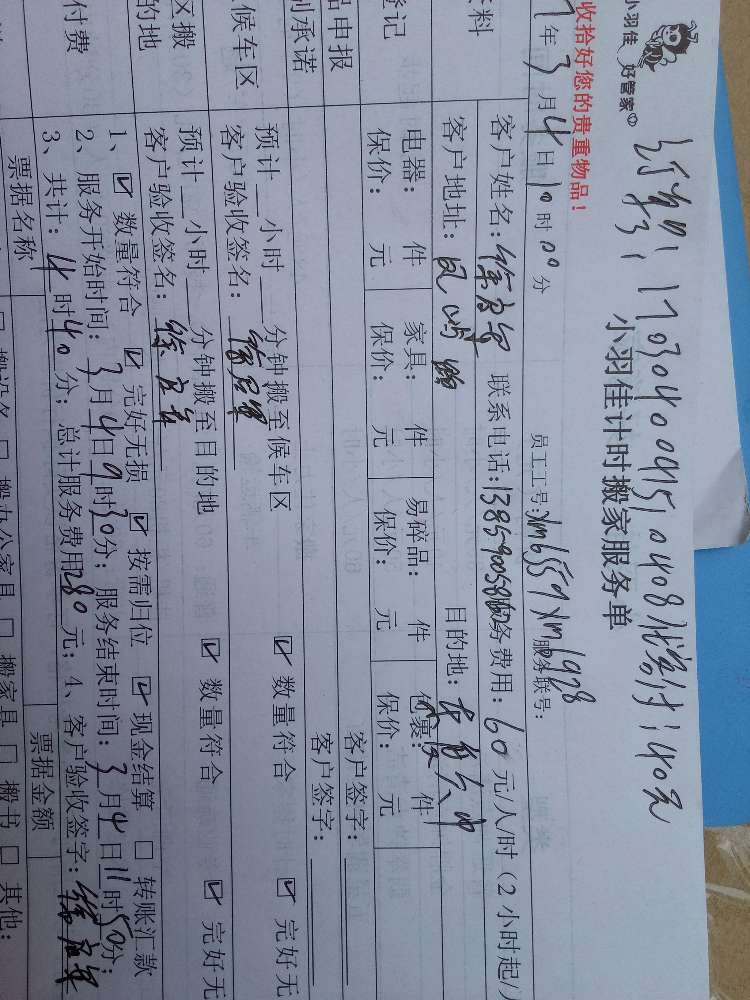 小羽佳
好管家
1703040091510408
140元
小羽佳计时搬家服务单
收拾好您的贵重物品！
年3月4日10时00分
员工工号：xm6559 xm1928
服务联号：
客户姓名：徐
联系电话：138590058
务费用：60元/人/时（2小时起/
客户地址：凤屿路
目的地：
登记
电器： 件 家具： 件 易碎品： 件 包裹： 件
保价： 元 保价： 元 保价： 元 保价： 元
品申报
客户签字：
承诺
客户签字：
候车区
预计 小时 分钟搬至候车区
数量符合 完好无
客户验收签名：
区搬
的地
预计 小时 分钟搬至目的地
数量符合 完好无
客户验收签名：徐
付费
1、☑ 数量符合 ☑ 完好无损 ☑ 按需归位 ☑ 现金结算 □ 转账汇款
2、服务开始时间：3月4日9时30分；服务结束时间：3月4日11时50分；
3、共计：4时40分；总计服务费用280元；4、客户验收签字：徐
票据名称 票据金额
□ 搬办公家具 □ 搬家具 □ 搬书 □ 其他：